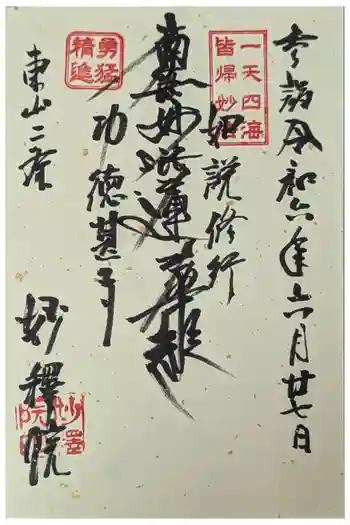 参詣令和六年六月廿七日
一天四海
皆帰妙法
如説修行
南無妙法蓮華経
功徳甚多
勇猛
精進
東山二条
妙釋院